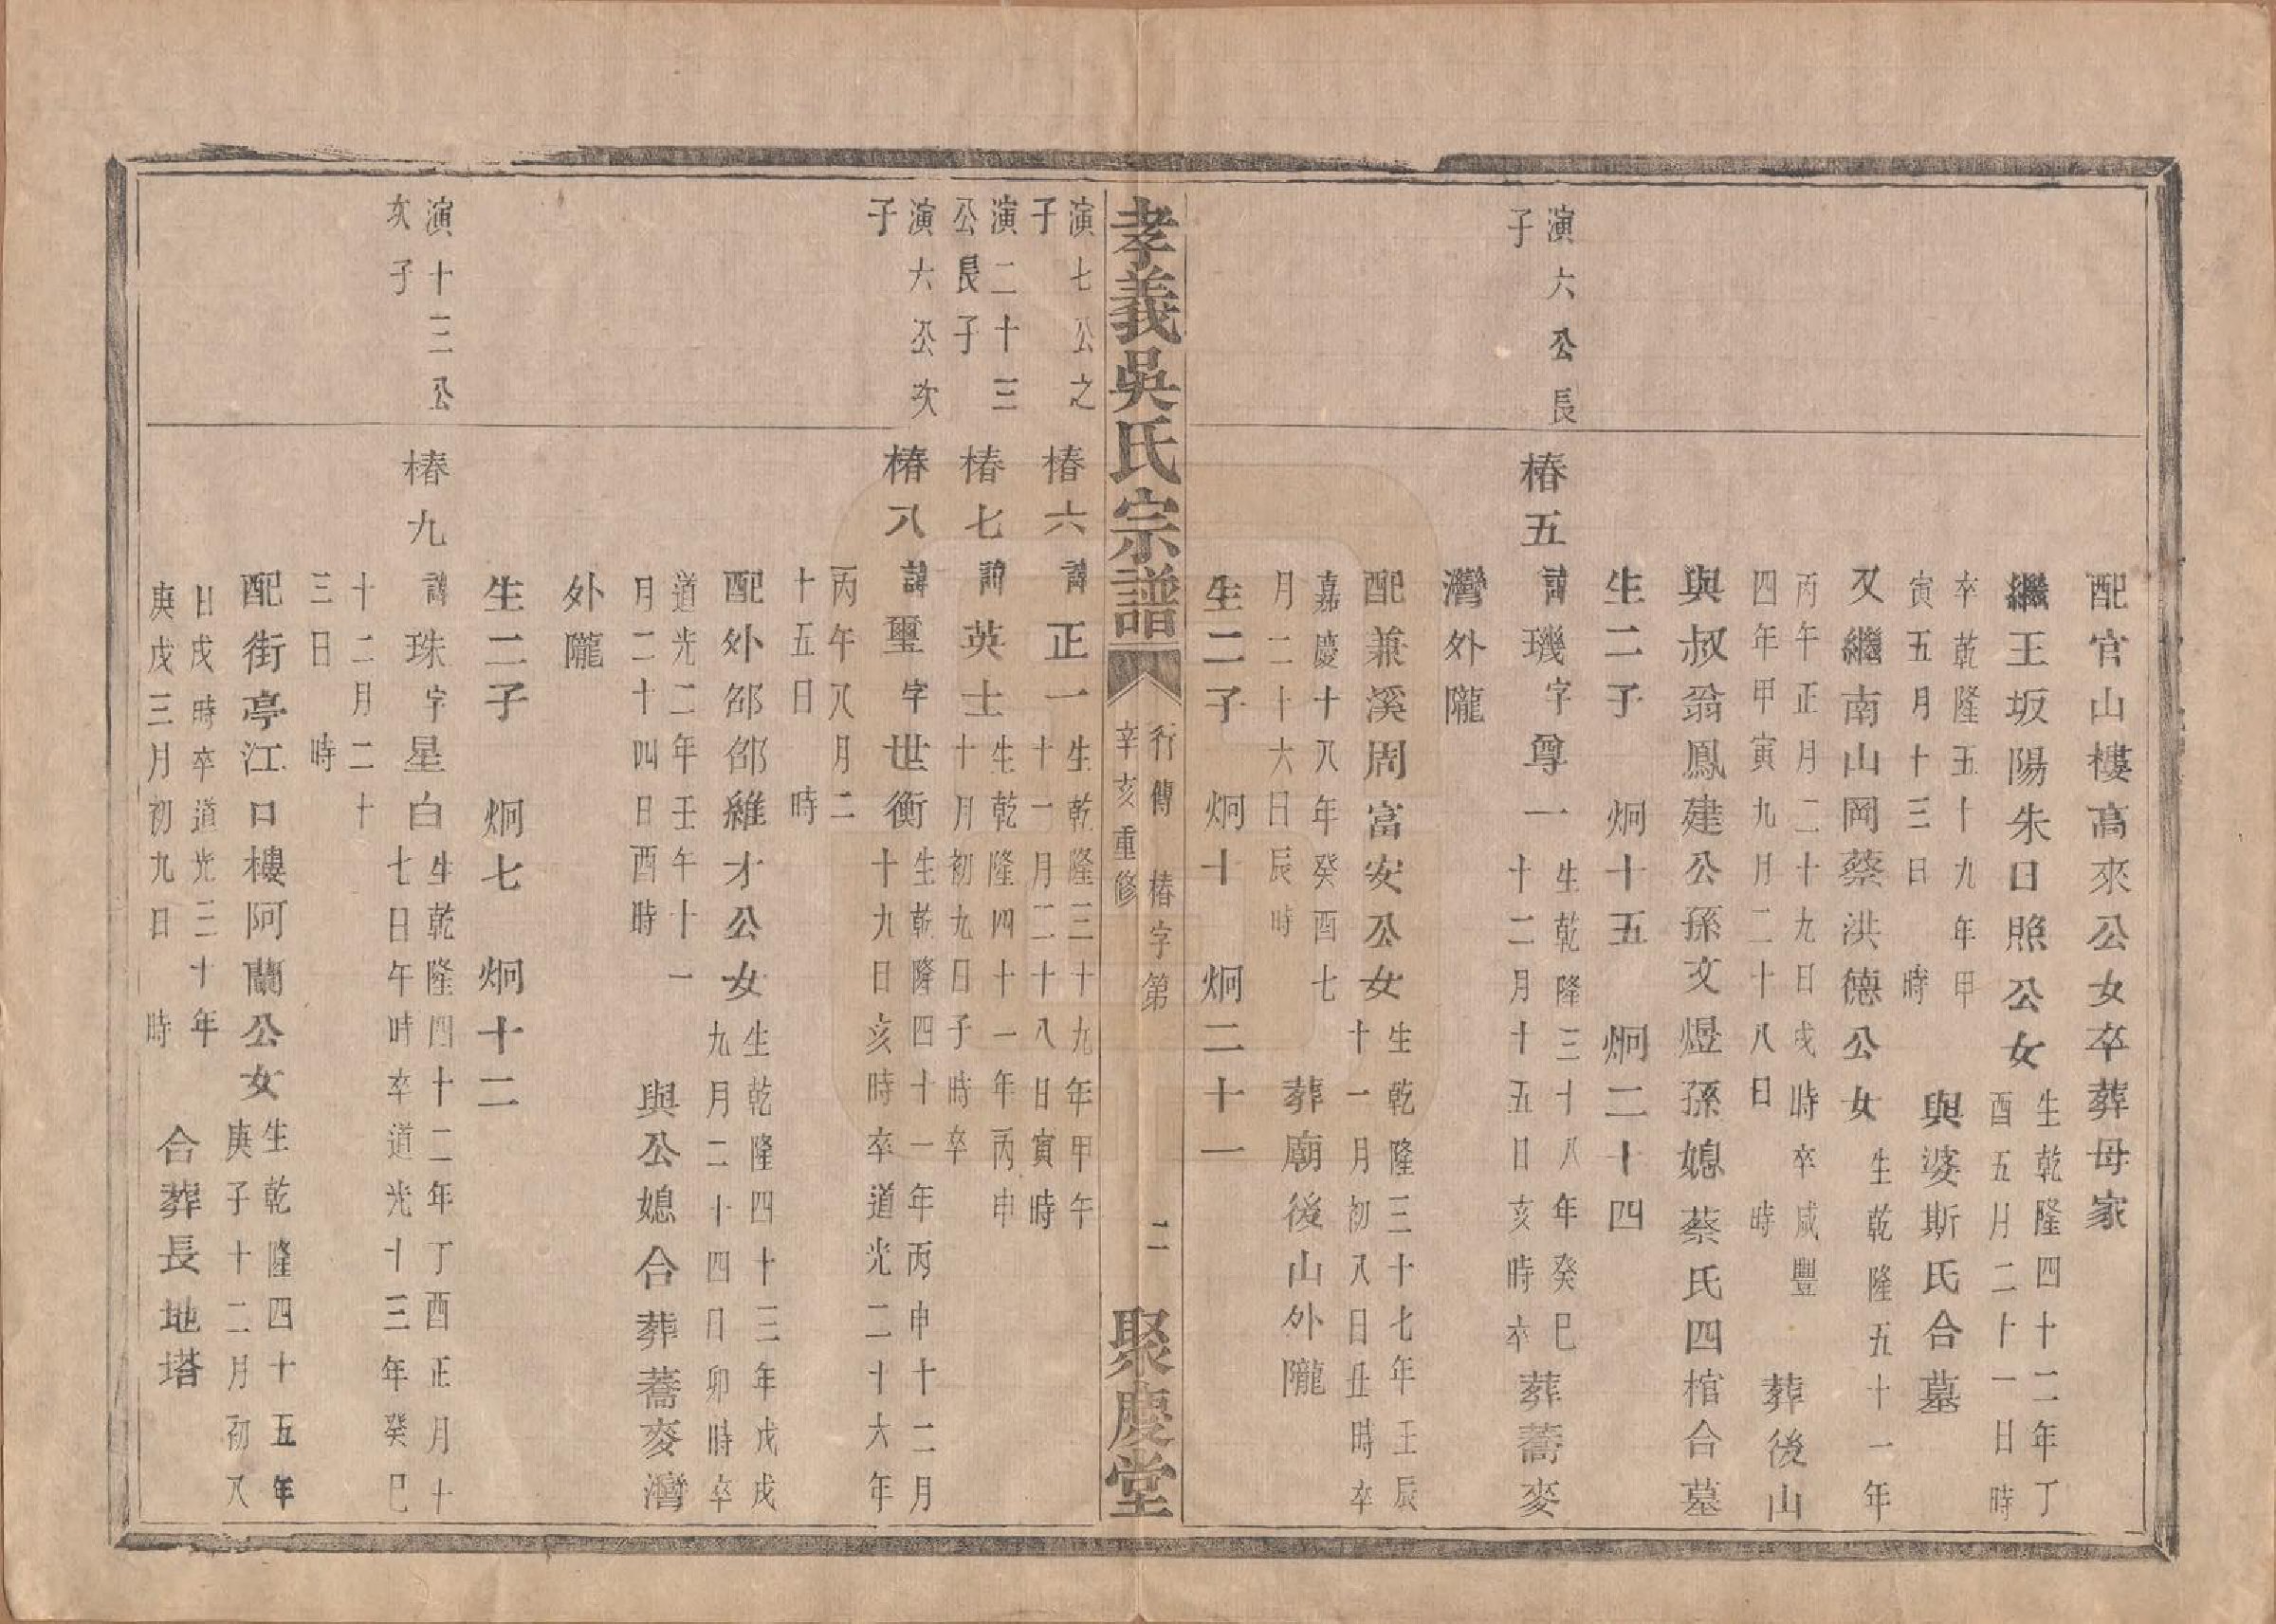 配官山樓高來公女卒葬母家
繼王坂陽朱日照公女生乾隆四十二年丁
酉五月二十一日時
卒乾隆五十九年甲
寅五月十三日　時　與婆斯氏合墓
又繼南山岡蔡洪德公女生乾隆五十一年
丙午正月二十九日戌時卒咸豐
四年甲寅九月二十八日　時　葬後山
與叔翁鳳建公孫文煜孫媳蔡氏四棺合墓
生二子　炯十五　炯二十四
演六公長
子
椿五諱璣字尊一生乾隆三十八年癸巳
十二月十五日亥時卒葬蕎麥
灣外隴
配兼溪周富安公女生乾隆三十七年壬辰
十一月初八日丑時卒
嘉慶十八年癸酉七
月二十六日辰時　葬廟後山外隴
生二子　炯十　炯二十一
孝義吳氏宗譜
行傳　椿字第　二
辛亥重修
聚慶堂
演七公之
子
椿六諱正一生乾隆三十九年甲午
十一月二十八日寅時
演二十三
公長子
椿七諱英士生乾隆四十一年丙申
十月初九日子時卒
演六公次
子
椿八諱璽字世衡生乾隆四十一年丙申十二月
十九日亥時卒道光二十六年
丙午八月二
十五日　時
配外邵邵維才公女生乾隆四十三年戊戌
九月二十四日卯時卒
道光二年壬午十一
月二十四日酉時　與公媳合葬蕎麥灣
外隴
生二子　炯七　炯十二
演十三公
次子
椿九諱珠字星白生乾隆四十二年丁酉正月十
七日午時卒道光十三年癸巳
十二月二十
三日　時
配街亭江口樓阿蘭公女生乾隆四十五年
庚子十二月初八
日戌時卒道光三十年
庚戌三月初九日　時　合葬長地塔